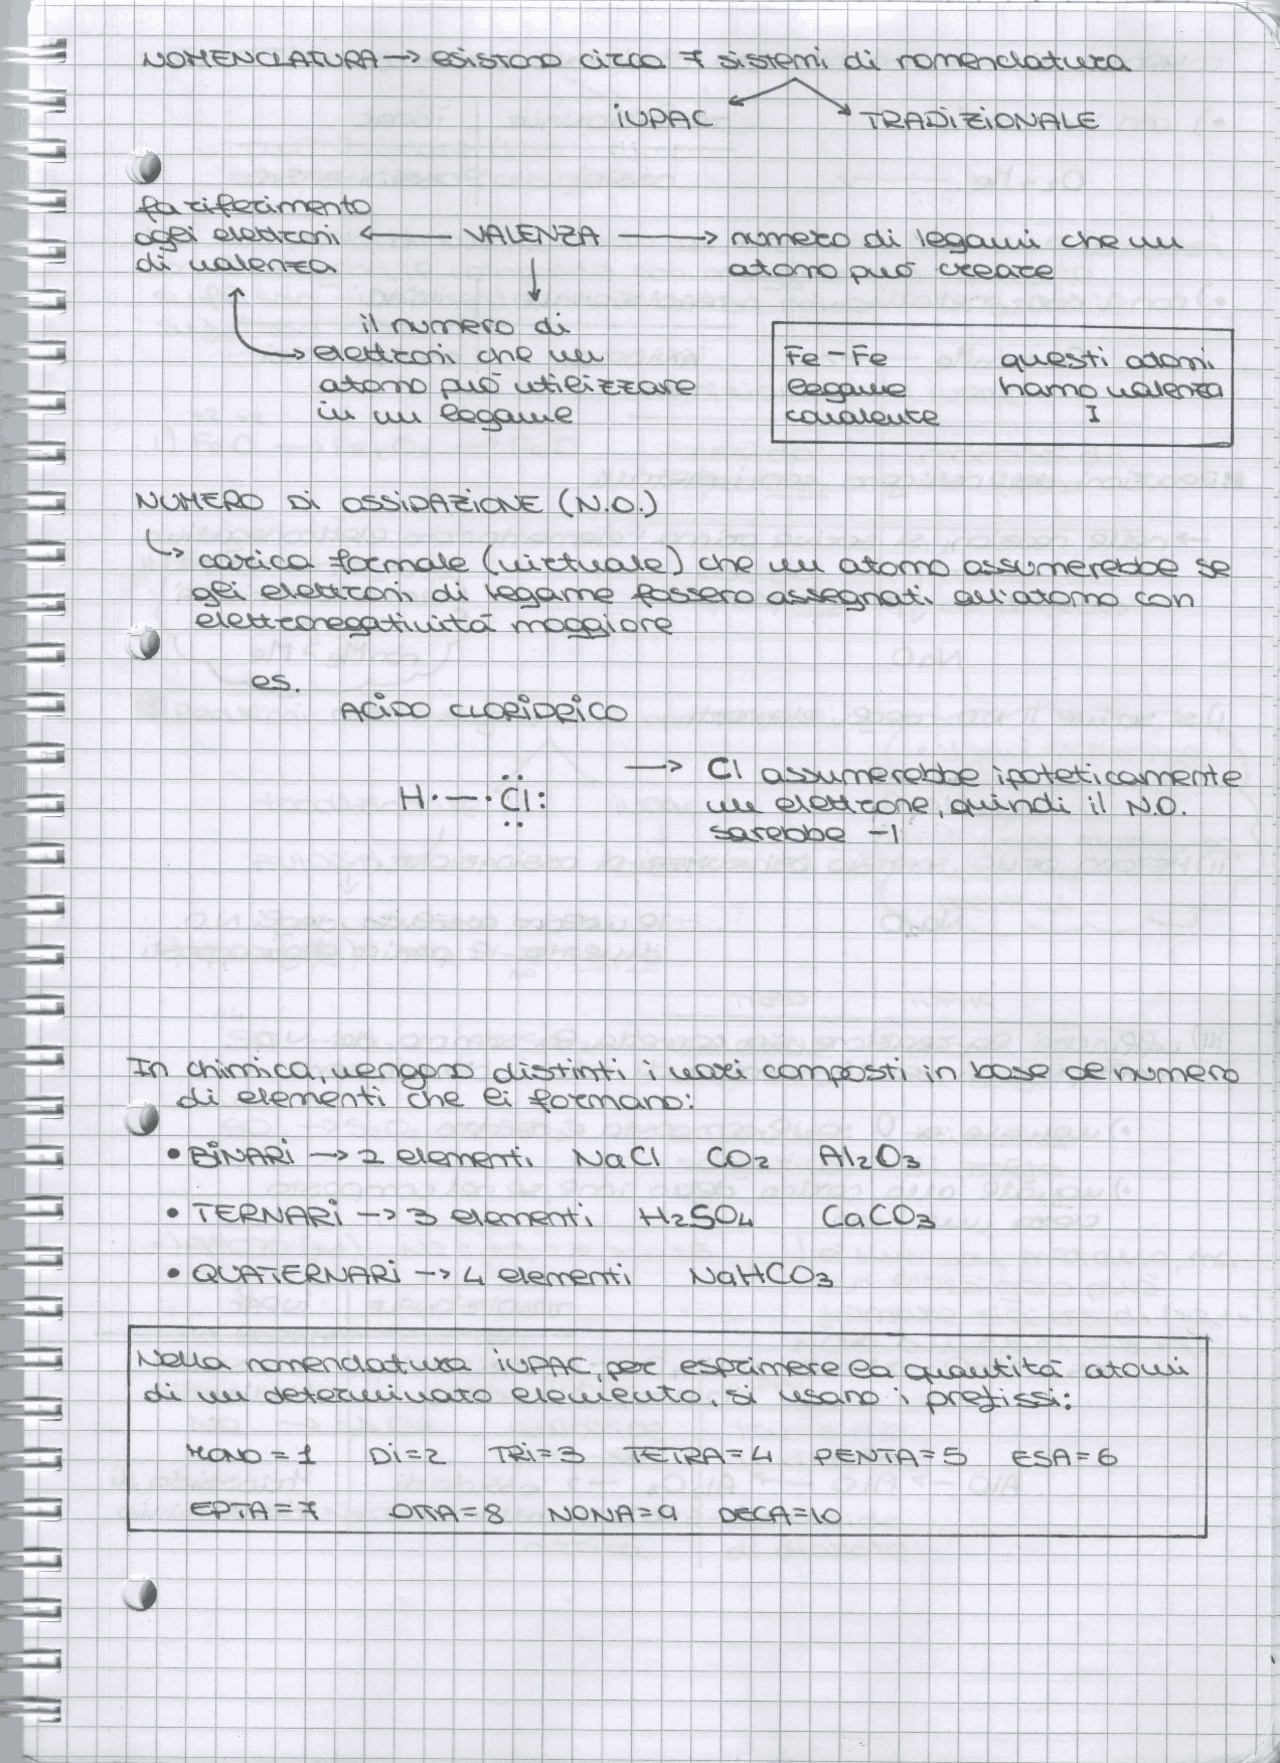 NOMENCLATURA → esistono circa 7 sistemi di nomenclatura
iUPAC
TRADIZIONALE
fa riferimento
agli elettroni ← VALENZA → numero di legami che un
di valenza
atomo può creare
il numero di
elettroni che un
atomo può utilizzare
in un legame
Fe - Fe questi atomi
legame hanno valenza
covalente I
NUMERO Di OSSIDAZIONE (N.O.)
↳ carica formale (virtuale) che un atomo assumerebbe se
gli elettroni di legame fossero assegnati all'atomo con
elettronegatività maggiore
es.
ACIDO CLORIDRICO
→ Cl assumerebbe ipoteticamente
H·—·Cl: un elettrone, quindi il N.O.
sarebbe -1
In chimica, vengono distinti i vari composti in base al numero
di elementi che li formano:
• BiNARi → 2 elementi NaCl CO2 Al2O3
• TERNARi → 3 elementi H2SO4 CaCO3
• QUATERNARi → 4 elementi NaHCO3
Nella nomenclatura iUPAC, per esprimere la quantità atomi
di un determinato elemento, si usano i prefissi:
MONO = 1 Di=2 TRi=3 TETRA=4 PENTA=5 ESA=6
EPTA=7 OTTA=8 NONA=9 DECA=10